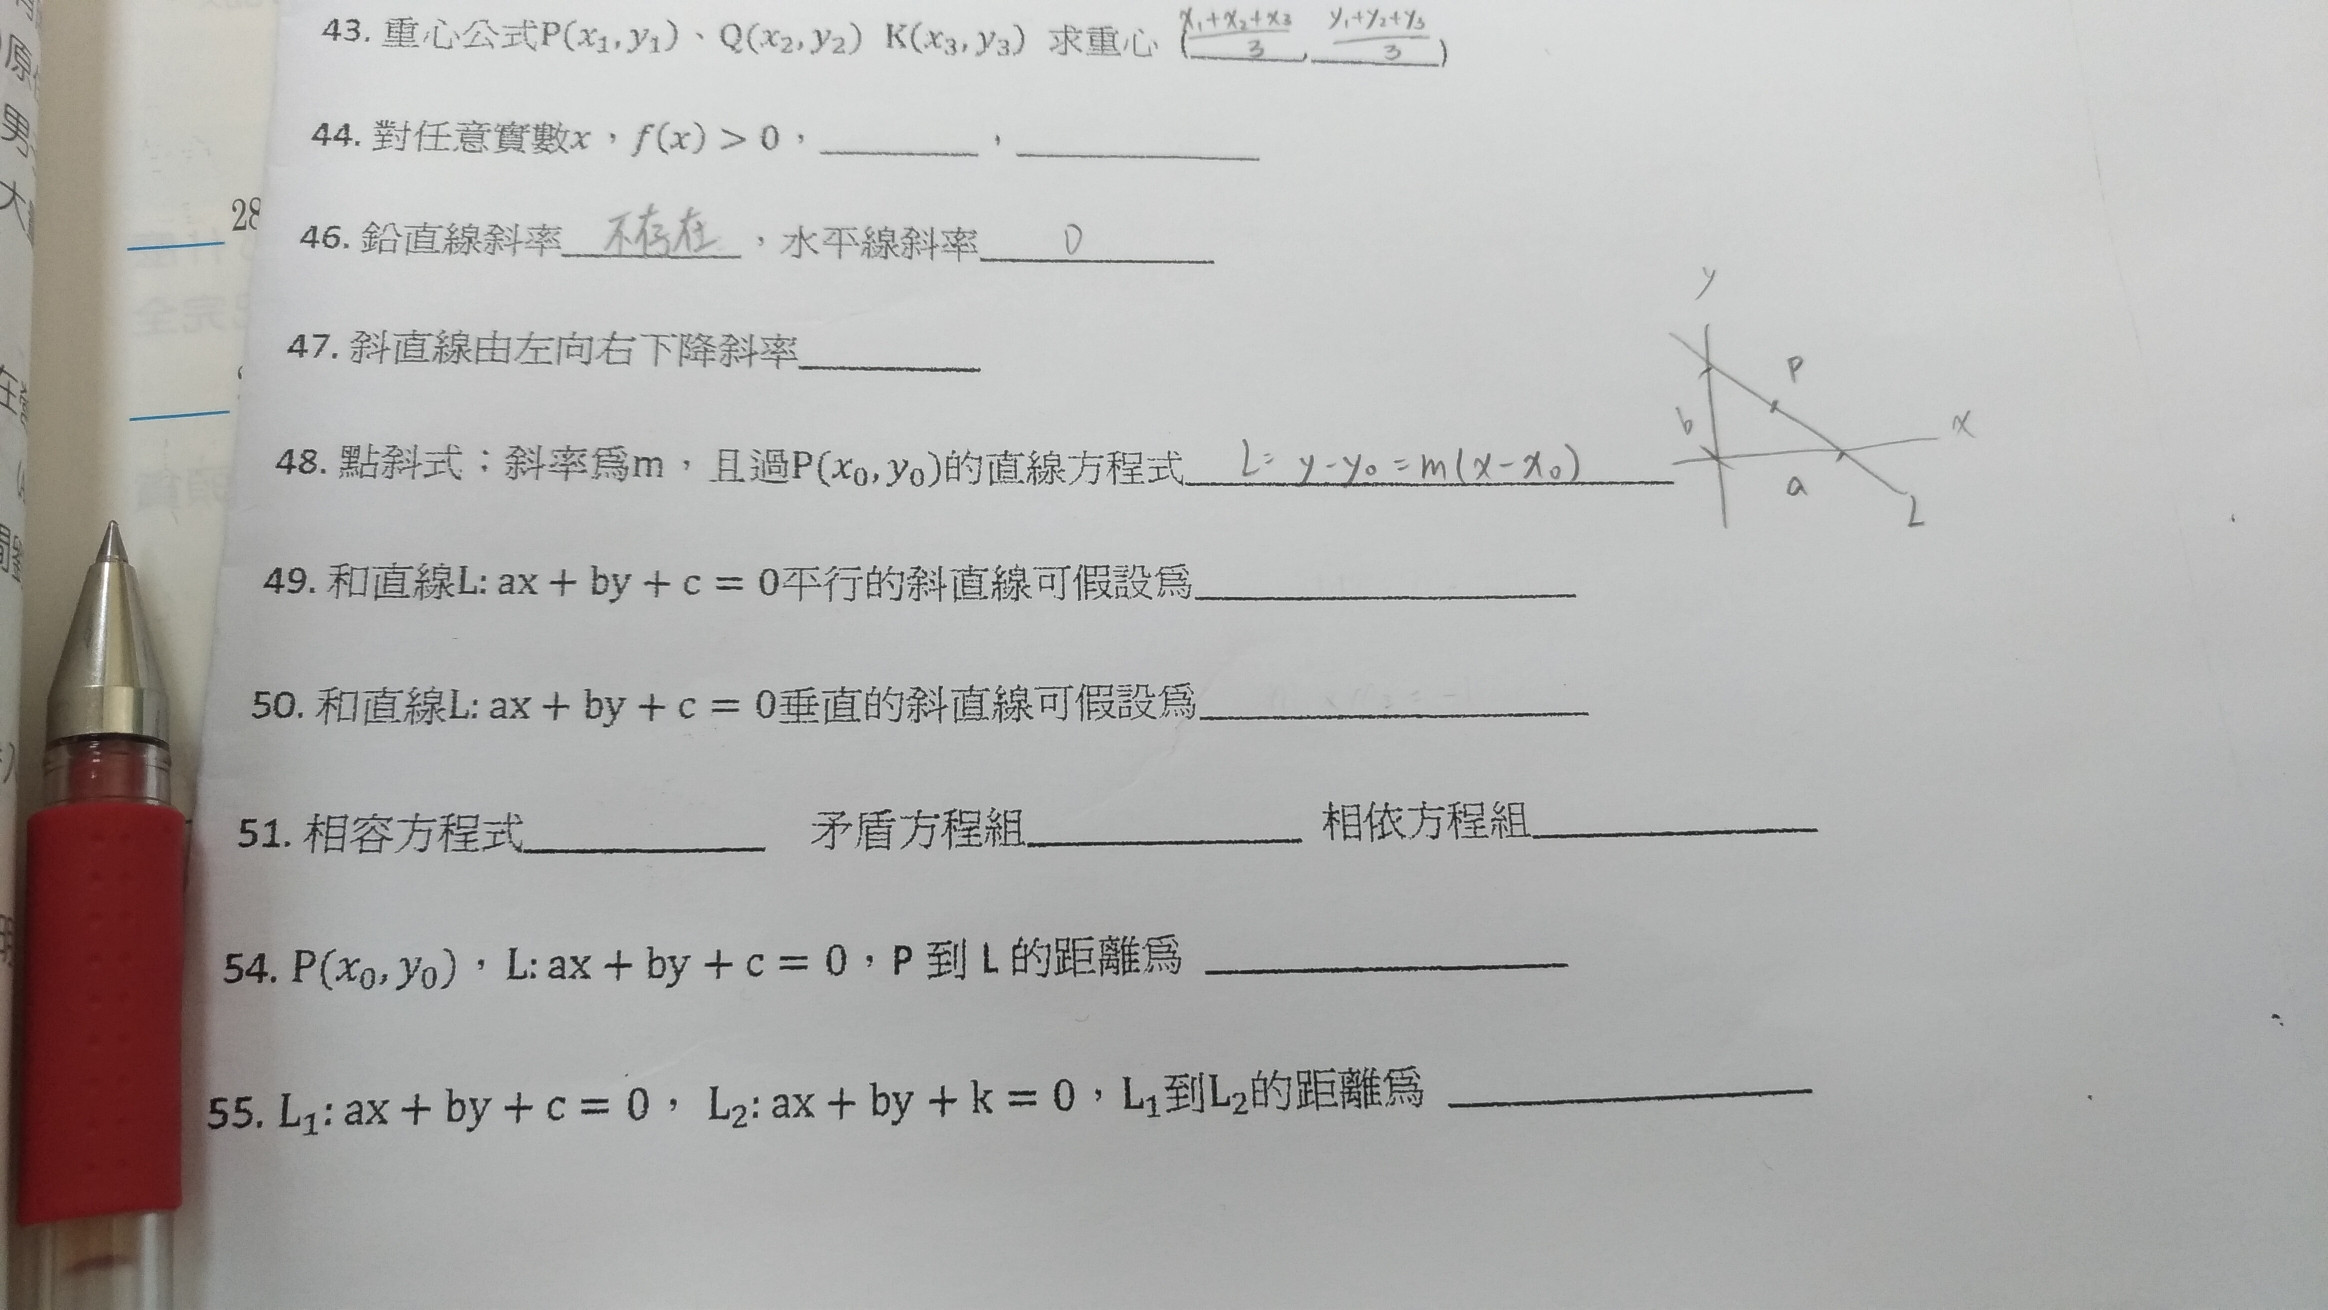 43. 重心公式P(x₁, y₁)、Q(x₂, y₂) K(x₃, y₃) 求重心 (x₁+x₂+x₃/3, y₁+y₂+y₃/3)
44. 對任意實數x，f(x) > 0，________，________
28
46. 鉛直線斜率 不存在 ，水平線斜率 0
47. 斜直線由左向右下降斜率________
y
P
b
x
a
L
48. 點斜式；斜率為m，且過P(x₀, y₀)的直線方程式 L: y-y₀=m(x-x₀)
49. 和直線L: ax + by + c = 0平行的斜直線可假設為________
50. 和直線L: ax + by + c = 0垂直的斜直線可假設為________
51. 相容方程式________ 矛盾方程組________ 相依方程組________
54. P(x₀, y₀)，L: ax + by + c = 0，P 到 L 的距離為 ________
55. L₁: ax + by + c = 0， L₂: ax + by + k = 0，L₁到L₂的距離為 ________
原
男
大
在